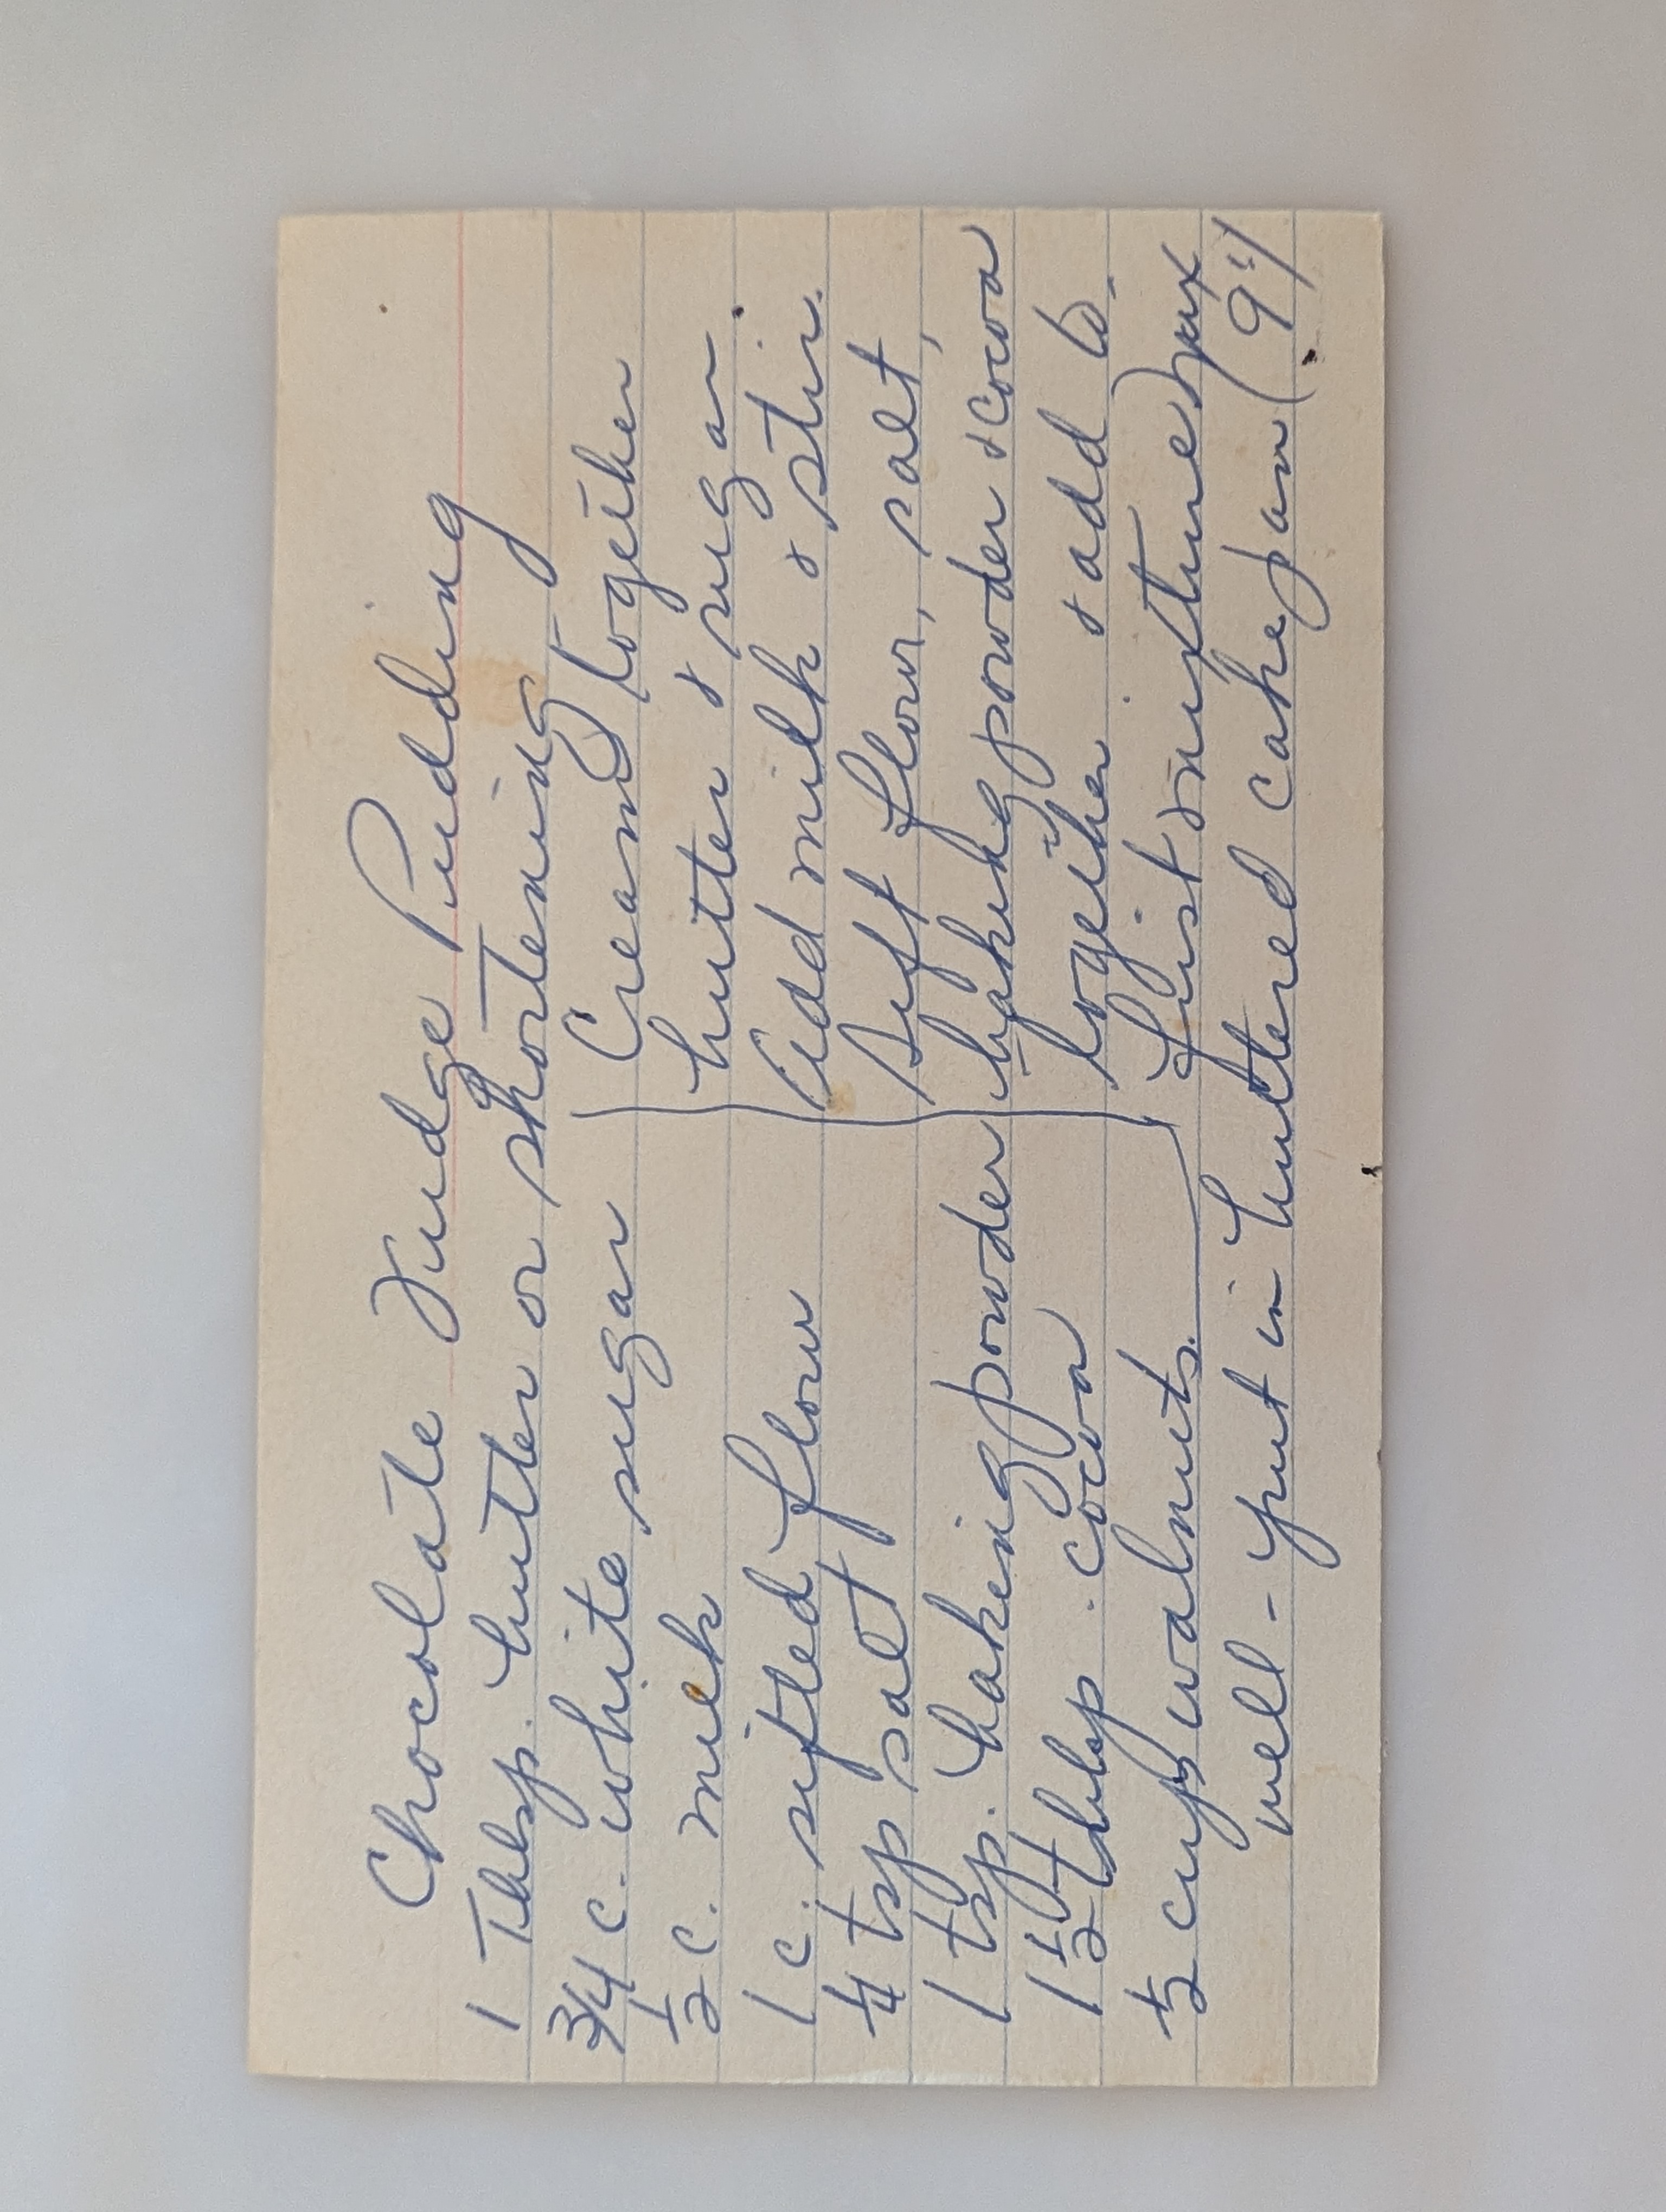 Chocolate Fudge Pudding
1 Tbsp. butter or shortening
3/4 c. white sugar
1/2 c. milk
1 c. sifted flour
1/4 tsp salt
1 tsp. baking powder
1 1/2 tblsp. cocoa
1/2 cup walnuts.
Cream together
butter & sugar.
Add milk & stir.
Sift flour, salt,
baking powder & cocoa
together & add to
first mixture) mix
well - put in buttered cake pan (9")